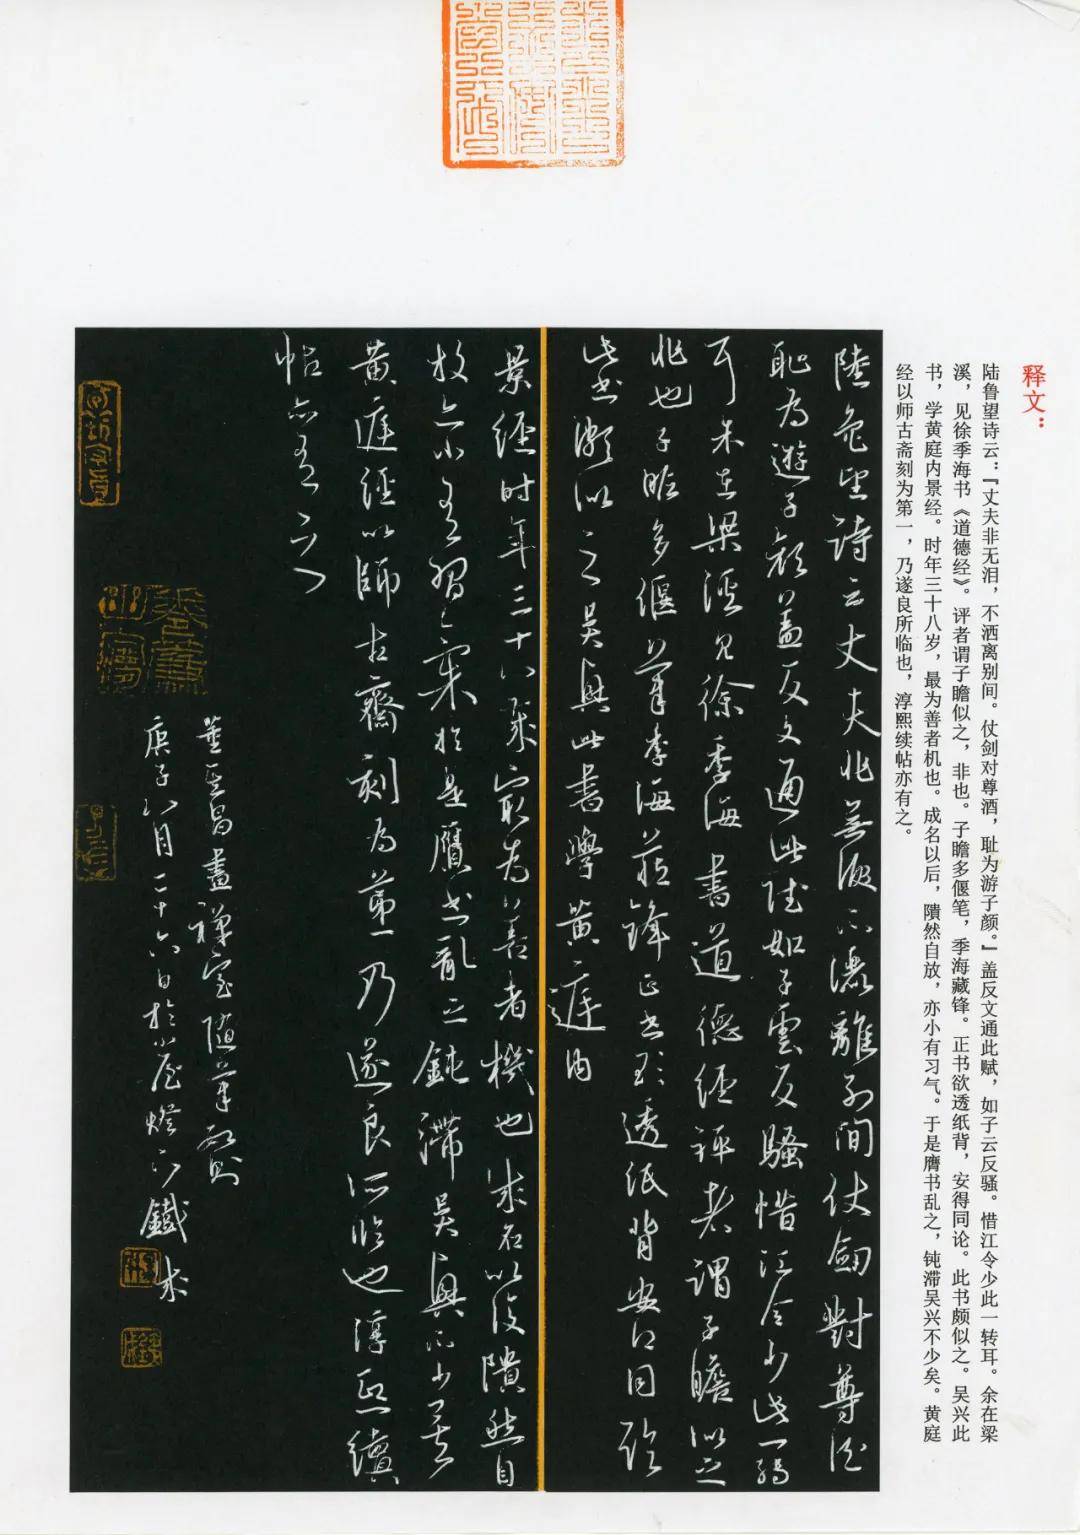 释文：
陆鲁望诗云：『丈夫非无泪，不洒离别间。仗剑对尊酒，耻为游子颜。』盖反文通此赋，如子云反骚。惜江令少此一转耳。余在梁
溪，见徐季海书《道德经》。评者谓子瞻似之，非也。子瞻多偃笔，季海藏锋。正书欲透纸背，安得同论。此书颇似之。吴兴此
书，学黄庭内景经。时年三十八岁，最为善者机也。成名以后，隤然自放，亦小有习气。于是膺书乱之，钝滞吴兴不少矣。黄庭
经以师古斋刻为第一，乃遂良所临也，淳熙续帖亦有之。
陸魯望詩云丈夫非無淚不灑離別間仗劍對尊酒
恥為遊子顏蓋反文通此賦如子雲反騷惜江令少此一轉
耳余在梁溪見徐季海書道德經評者謂子瞻似之
非也子瞻多偃筆季海藏鋒正書欲透紙背安得同論
此書頗似之吳興此書學黃庭內
景經时年三十八歲最為善者機也成名以後隤然自
放亦小有習氣於是贋書亂之鈍滯吳興不少矣
黃庭經以師古齋刻為第一乃遂良所臨也淳熙續
帖亦有之
董其昌畫禪室隨筆一則
庚子八月二十六日於小屋燈下鐵